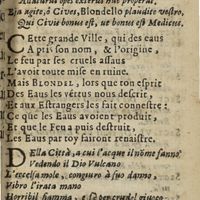 Eia agite, ô Cives, Blondello plaudite vestro,
Qui Civis bonus est, ut bonus est Medicus.
CEtte grande Ville, qui des eaux
A pris son nom, & l'origine,
Le feu par ses cruels assaux
L'avoit toute mise en ruine.
Mais BLONDEL, lors que ton esprit
Des Eaux les vertus nous descrit,
Et aux Estrangers les fait connestre:
Ce que les Eaux avoient produit,
Et que le Feu a puis destruit,
Les Eaux par toy fairont renaistre.
DElla Città, a cui l'acque il nome fanno
Vedendo il Dio Vulcano
L'eccelsa mole, congiuro à suo danno,
Vibro l'irata mano
Horribil